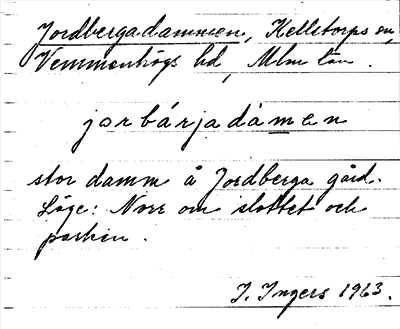 Jordbergadammen, Kellstorps sn,
Vemmenhögs hd, Mlm län.
jorbárjadámen
stor damm å Jordberga gård.
Läge: Norr om slottet och
parken.
I. Ingers 1963.